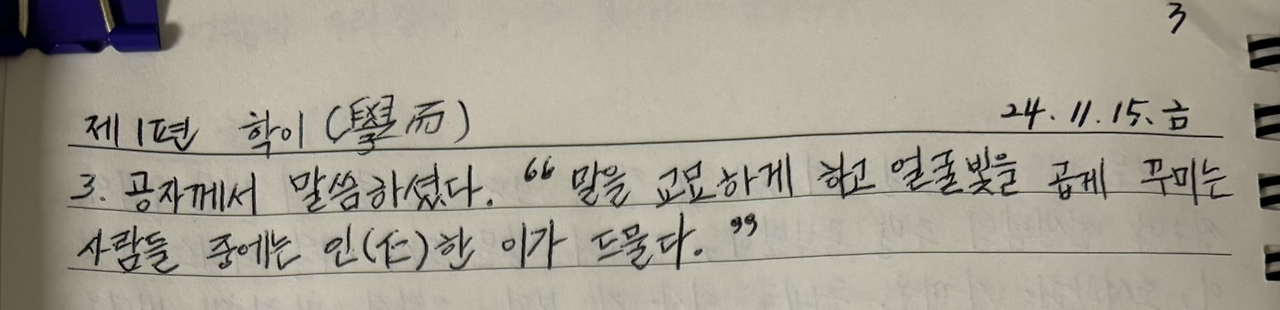 3
제1편 학이(學而) 24.11.15.금
3. 공자께서 말씀하셨다. “말을 교묘하게 하고 얼굴빛을 곱게 꾸미는
사람들 중에는 인(仁)한 이가 드물다.”